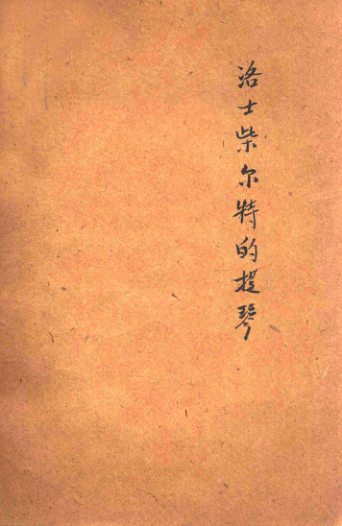 洛士柴尔特的提琴